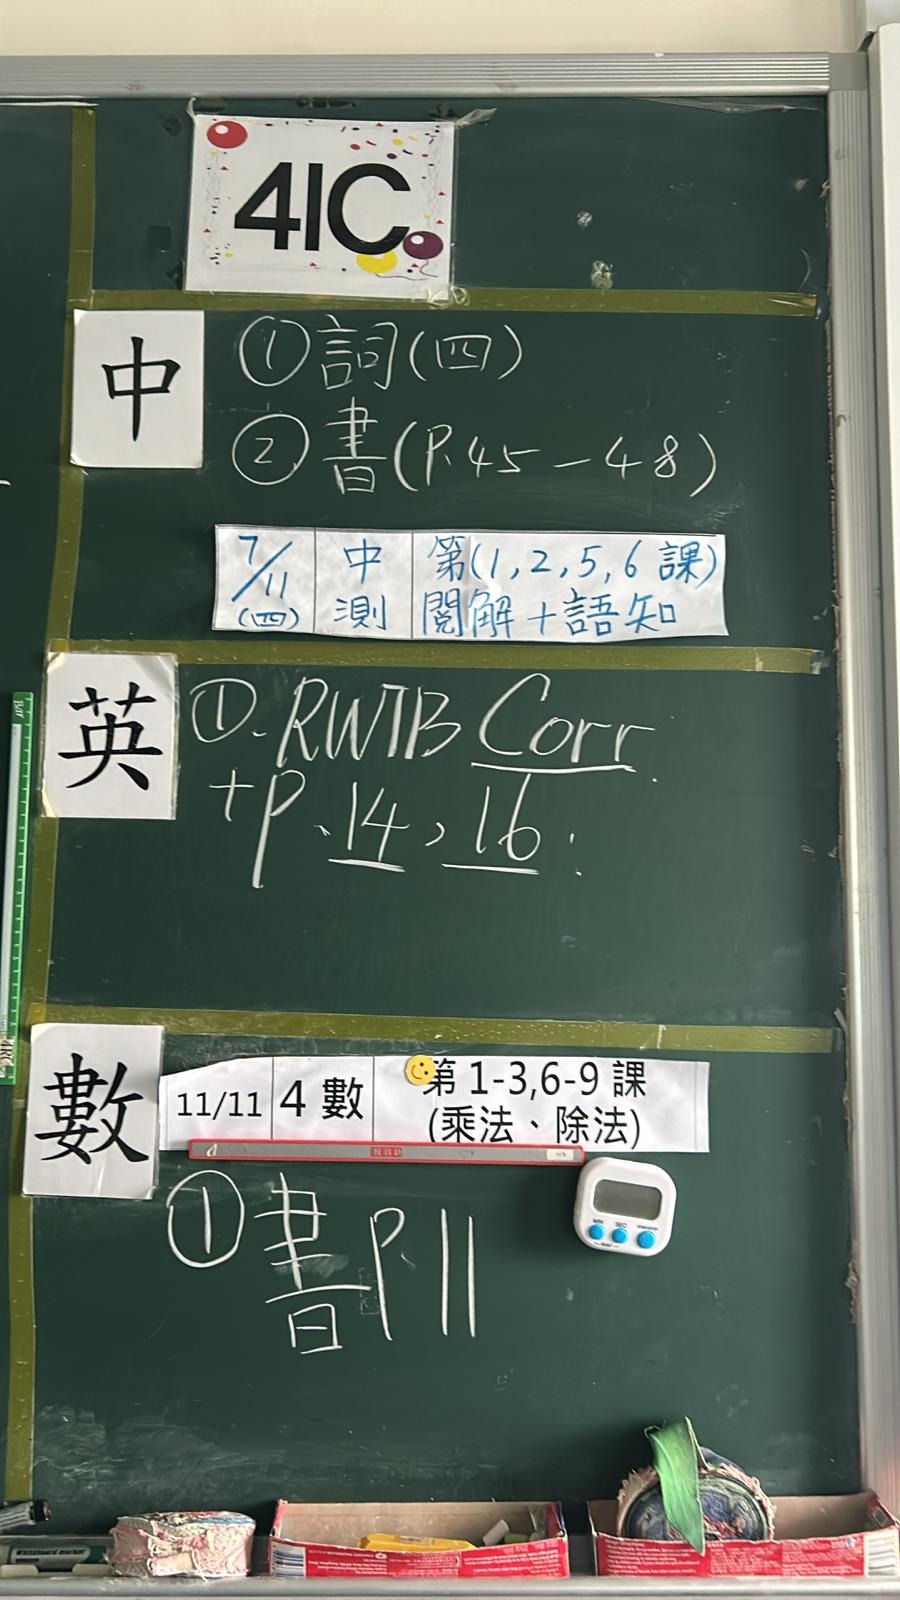 4IC
中
①詞(四)
②書(P.45-48)
7/11
(四)
中
測
第(1,2,5,6課)
閱解+語知
英
①.RWTB Corr.
+P.14,16.
數
11/11
4數
第1-3,6-9課
(乘法、除法)
①書P.11